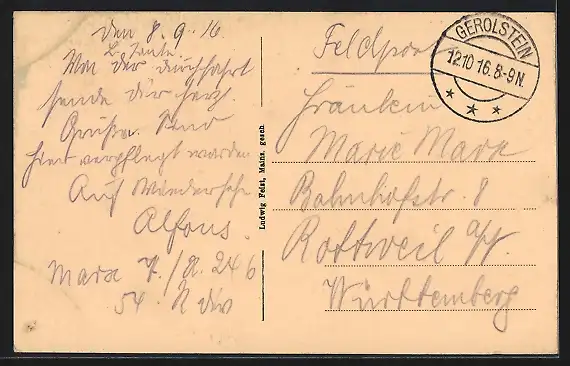 den 8.9.16
L. Tante
Von der Durchfahrt
sende dir herzl.
Grüße. Sind
hier verpflegt worden
Auf Wiedersehn
Alfons.
Marx 7./R. 246
54. R div
Ludwig Feist, Mainz. gesch.
Feldpost
GEROLSTEIN
12.10.16.8-9N.
* * *
Fräulein
Marie Marx
Bahnhofstr. 8
Rottweil a/N.
Württemberg